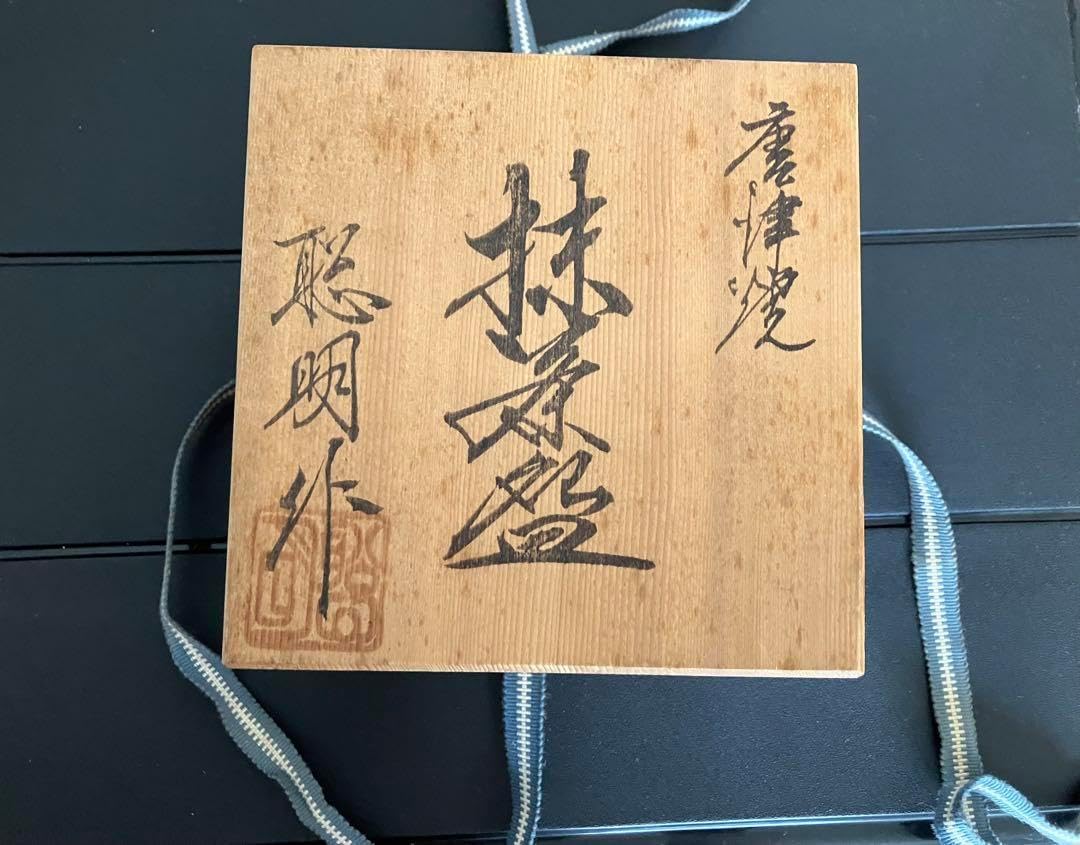 唐津焼
抹茶盌
聡明作